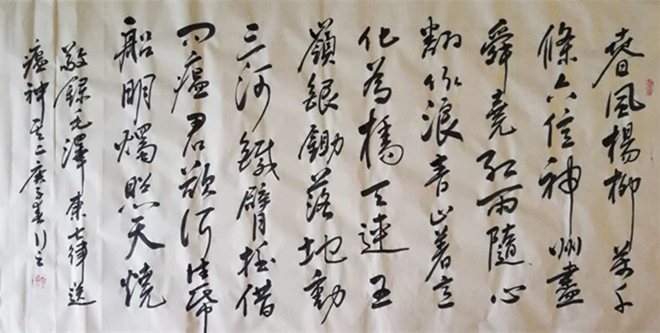 春風楊柳萬千
條六億神州盡
舜堯紅雨隨心
翻作浪青山著意
化為橋天連五
嶺銀鋤落地動
三河鐵臂摇借
问瘟君欲何往紙
船明燭照天燒
敬錄毛澤東七律送
瘟神其二庚子春